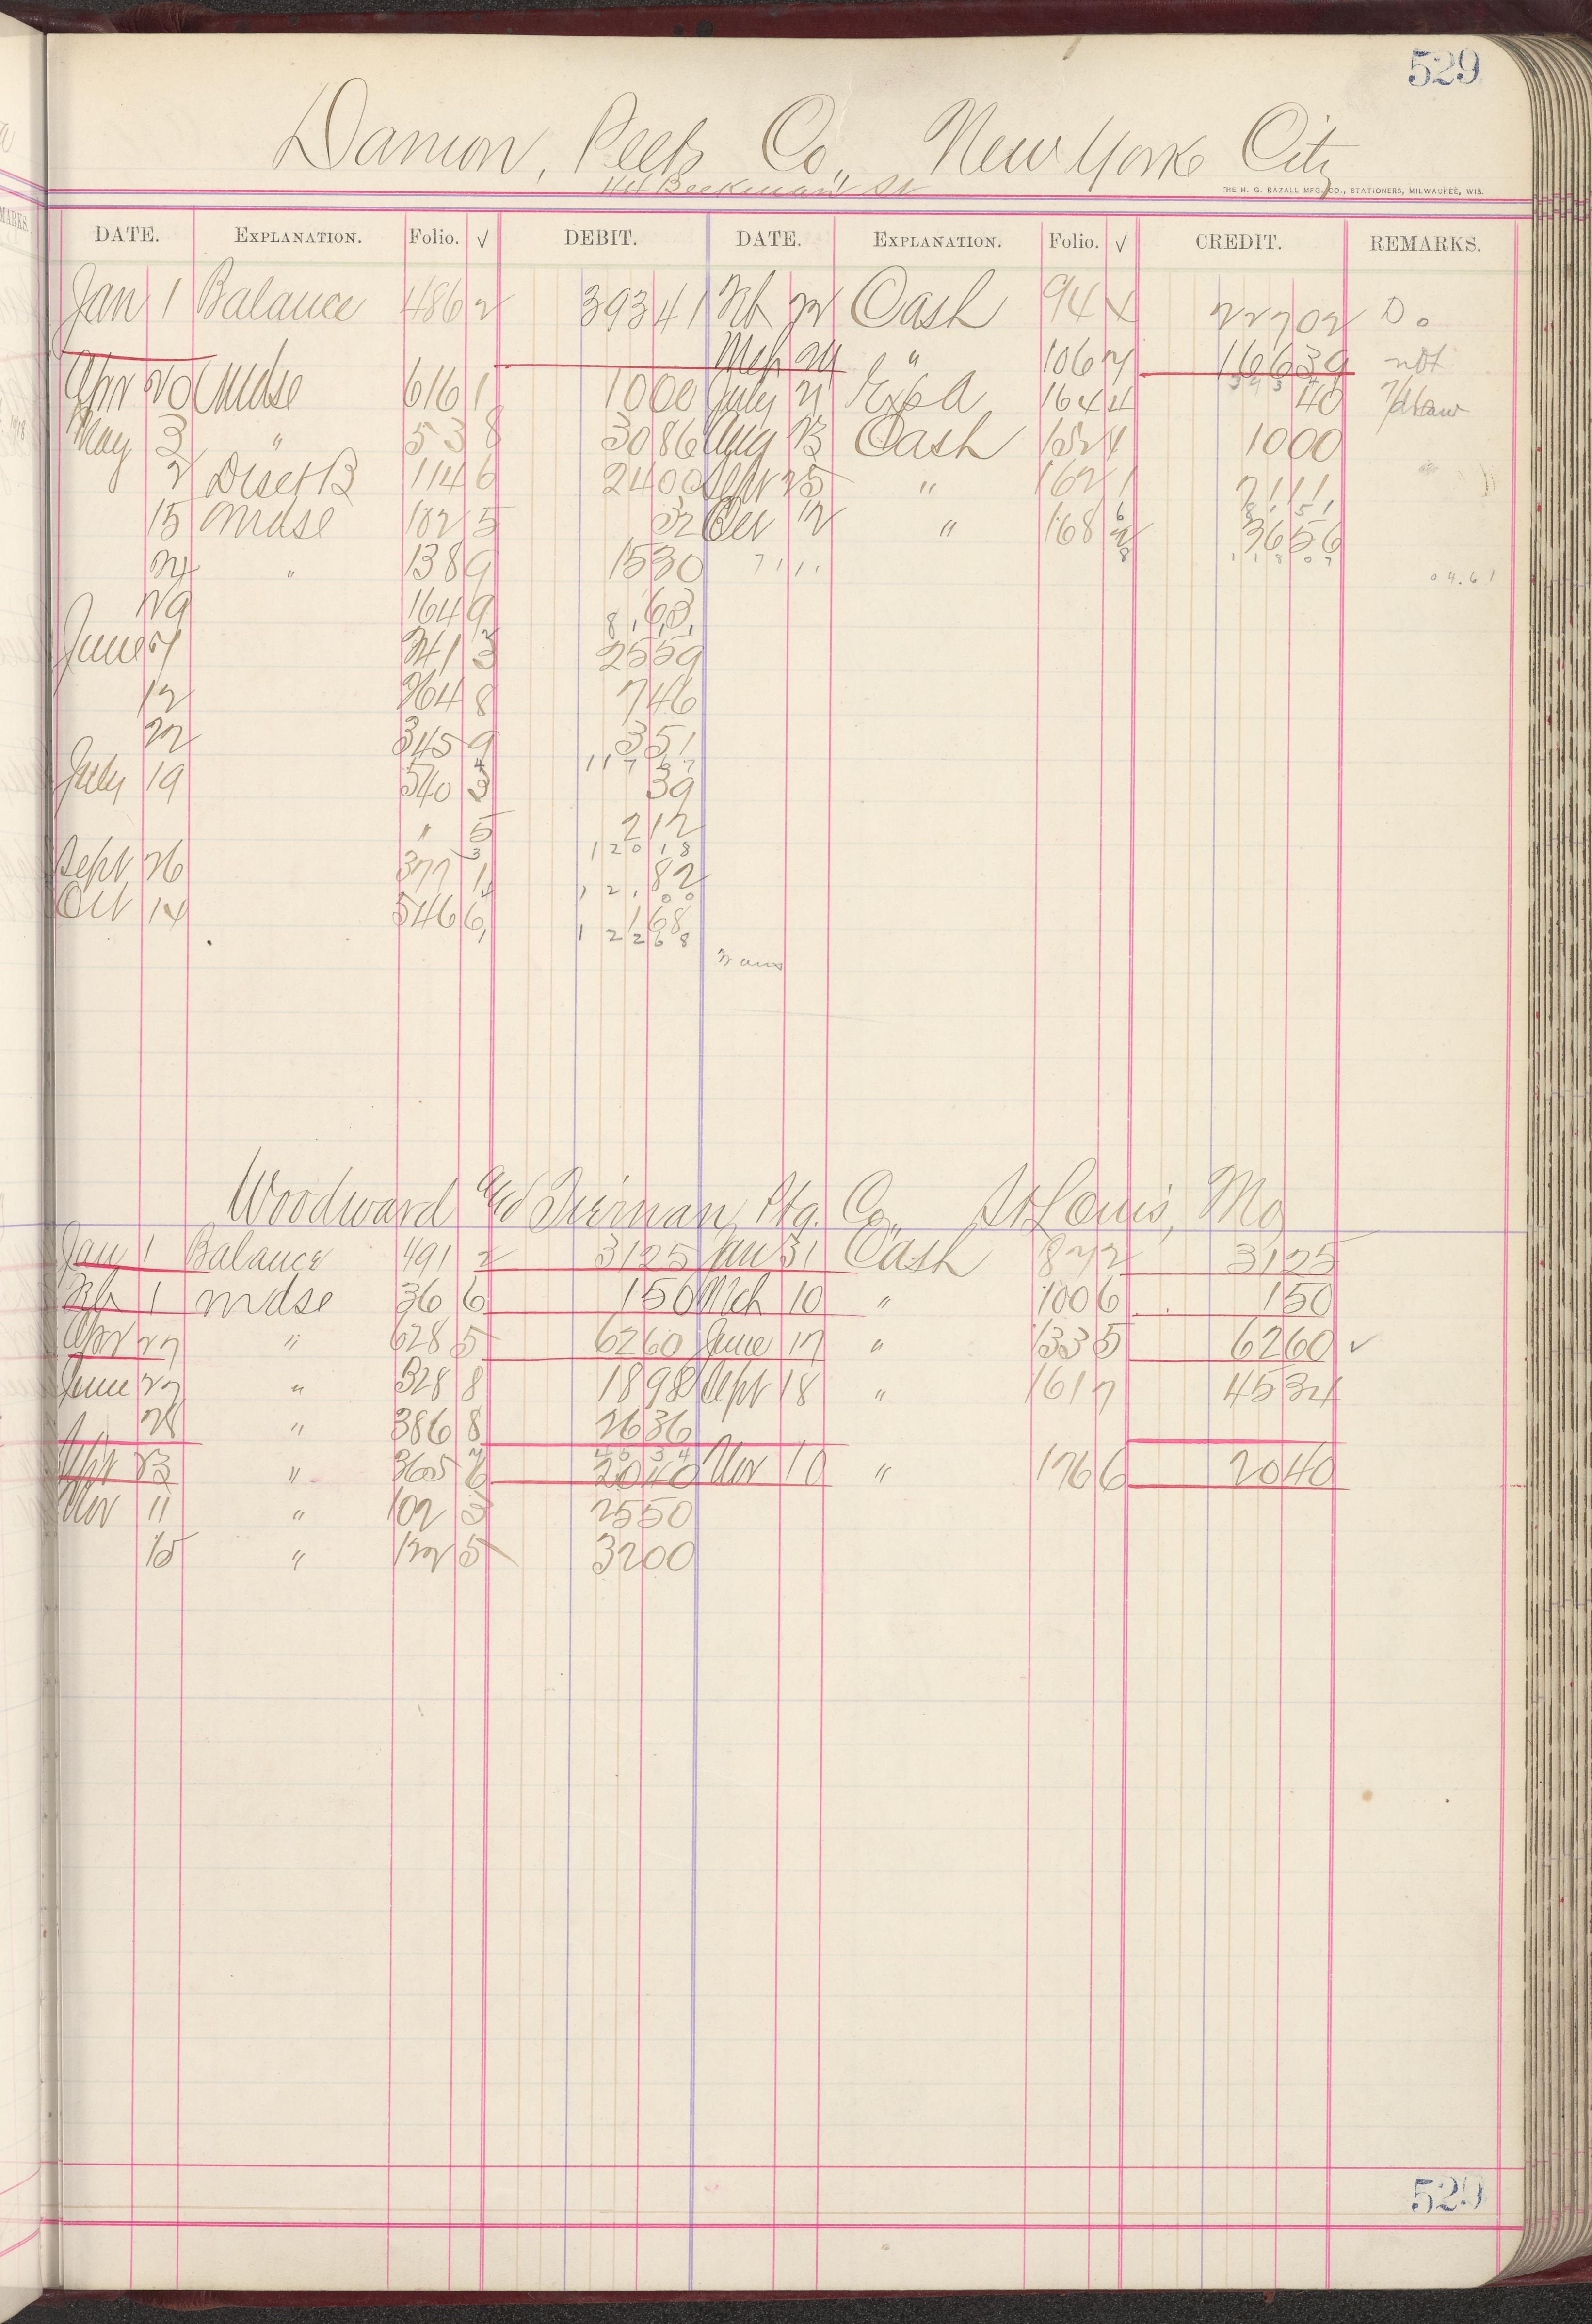 529
Damon, Peets Co., New York City
44 Beekman St
THE H. G. RAZALL MFG. CO., STATIONERS, MILWAUKEE, WIS.
DATE. EXPLANATION. Folio. √ DEBIT. DATE. EXPLANATION. Folio. √ CREDIT. REMARKS.
Jan 1 Balance 486 2 39341 Feb 22 Cash 94 22702
Mch 24 " 106 16639
Apr 20 Mdse 616 1 1000 July 21 164 4 40
May 3 " 53 8 3086 Aug 13 Cash 152 4 1000
2 114 6 2400 Sept 25 " 162 1 2111
15 Mdse 182 5 32 Oct 12 " 168 3656
24 " 138 9 1530
29 164 9 63
June 241 3 2559
12 264 8 746
22 345 9 351
July 19 540 3 39
" 5 212
1 2 0 1 8
Sept 26 377 1 82
Oct 14 546 6 168
1 2 2 6 8
Woodward and Tiernan Ptg. Co., St Louis, Mo
Jan 1 Balance 491 2 3125 Jan 31 Cash 87 2 3125
Feb 1 Mdse 36 6 150 Mch 10 " 100 6 150
Apr 27 " 628 5 6260 June 17 " 133 5 6260 ✓
June 22 " 328 8 1898 Sept 18 " 161 7 4534
28 " 386 8 2636
4534
Sept 23 " 365 2040 Nov 10 " 176 6 2040
Nov 11 " 102 3 2550
15 " 132 5 3200
529